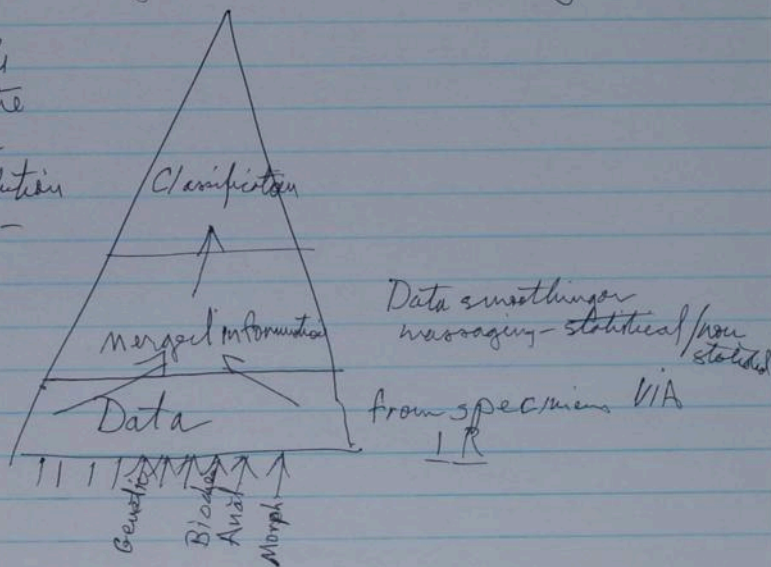 Classification
merged information
Data smoothing or
massaging - statistical/non
statistical
Data
from specimens VIA
I R
Genetic
Bioche
Anat
Morph